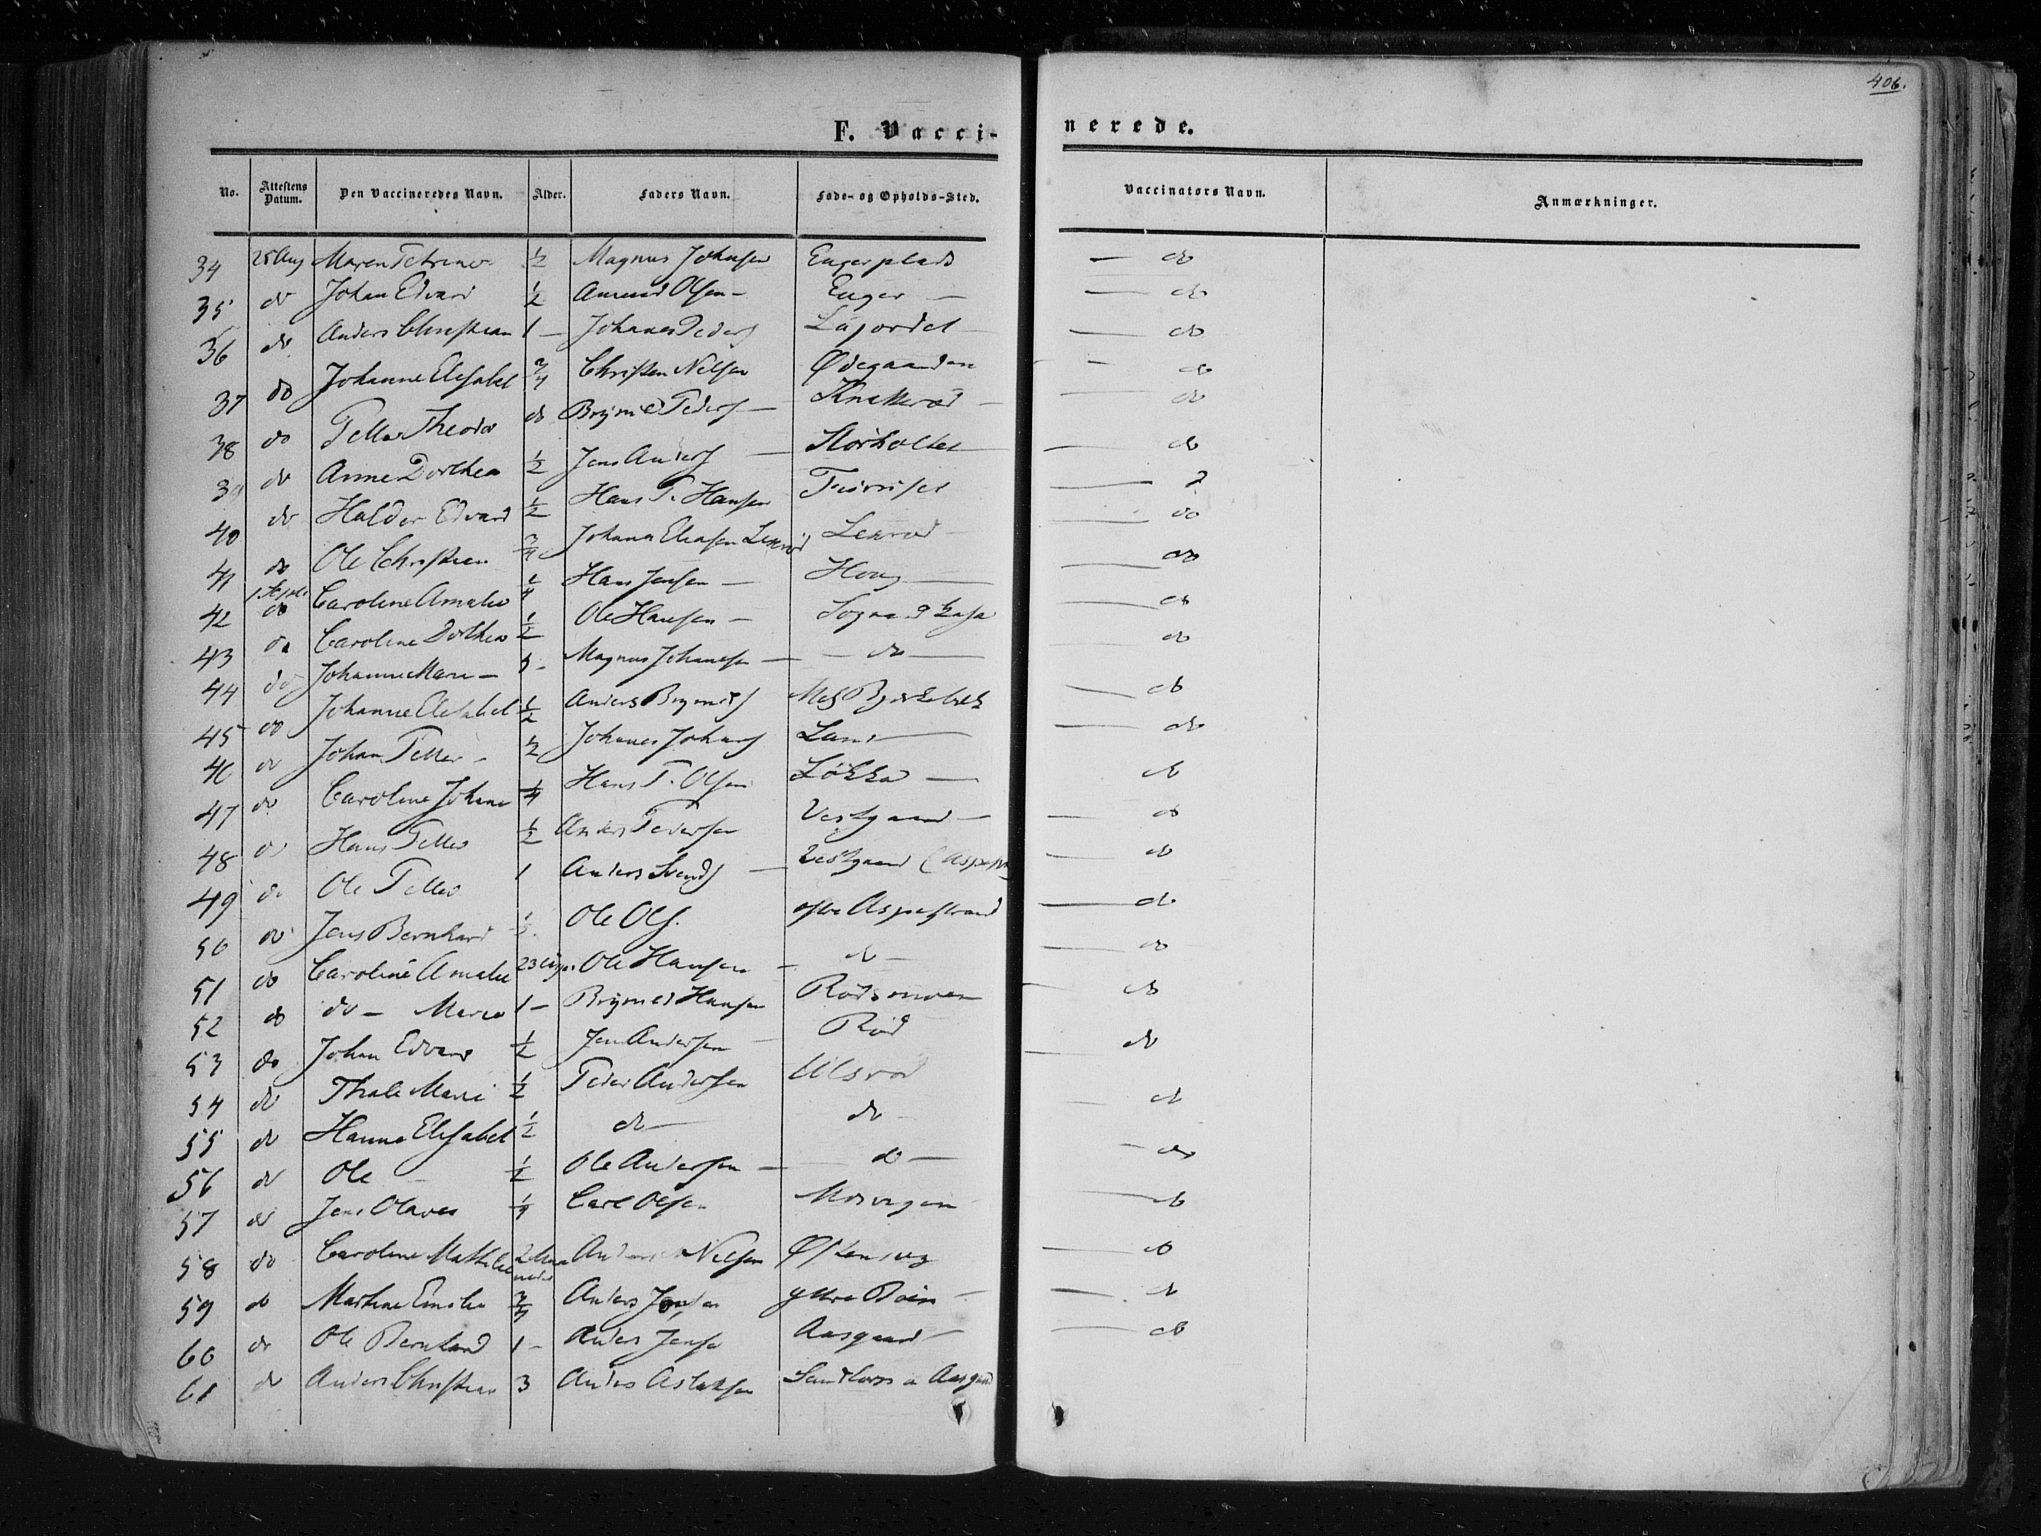 406.
F. Vacci-
nerede.
No. Attestens Datum. Den Vaccineredes Navn. Alder. Faders Navn. Føde- og Opholds-Sted. Vaccinators Navn. Anmærkninger.
34 25 Aug Maren Petrine ½ Magnus Johnsen Engerplads — do
35 do Johan Edvard ½ Amund Olsen — Enger — — do
36 do Anders Christian 1 — Johannes Peders — do
37 do Johanne Elisabet ¾ Christen Nilsen Ødegaarden — do
38 do Petter Theodor do Brynild Peders — Knatterød — — do
39 do Anne Dorthea ½ Jens Anders — Storholtet — do
40 do Haldor Edvard ½ Hans P. Hansen — 2
41 do Ole Christian ¾ Johannes Eliasen Lexrød Lexrød — — do
42 do Caroline Amalie ¼ Hans Jensen — Houg — — do
43 do Caroline Dorthea ½ Ole Hansen — — do
44 do Johanne Marie — 3 — Magnus Johannesen — — do — — do
45 do Johanne Elisabet ½ Anders Brynilds — do
46 do Johan Petter — ½ Johannes Johans Lund — — do
47 do Caroline Johanne ¼ Hans P. Olsen Løkka — — do
48 do Hans Petter ½ Anders Pedersen Vestgaard — — do
49 do Ole Petter 1 Anders Svends — Vestgaard (Aspestr — do
50 do Jens Bernhard ½ Ole Ols. østre Aspestrand — do
51 do Caroline Amalie Ole Hansen — do — — do
52 do do — Maria 1 — Brynild Hansen Rødsmoen — do
53 do Johan Edvard ½ Jens Andersen — Rød — do
54 do Thale Marie ½ Peder Andersen Ulsrød — do
55 do Hanna Elisabet ½ do — do — do
56 do Ole — ½ Ole Andersen — — do — — do
57 do Jens Olaves ¼ Carl Olsen — do
58 do Caroline Mathilde 2 Maaneder Anders Nilsen — do
59 do Martine Emilie ¾ Anders Jensen ytre Bøen — — do
60 do Ole Bernhard 1 — Anders Jensen Aasgaard — — do
61 do Anders Christian 3 Anders Aslaksen